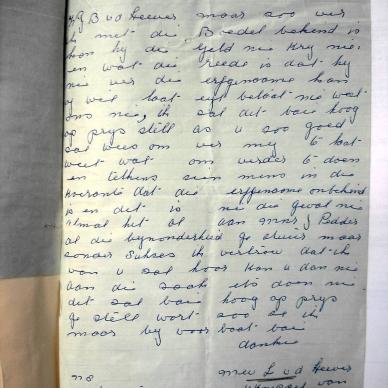 J B v d Heever maar soo ver
ik met die Boedel bekend is
kan hy die geld nie kry nie
en wat die rede is dat hy
nie ver die erfgename kan
of wil laat uyt betaal nie weet
ons nie, ik sal dit baie hoog
op prys stell as u soo goed
sal wees om ver my te laat
weet wat om verder te doen
en telkens sien mens in die
koerante dat die erfgename onbekend
is en dit is nie die geval nie
Almal het al aan mnr J Pedder
al die bynonderheid ge stuur maar
sonder sukses ik vertrou dat ik
van u sal hoor kan u dan nie
aan die saak iets doen nie
dit sal baie hoog op prys
ge stell wort soo al ik
maar by voor baat baie
dankie
mev L v d Heever
van